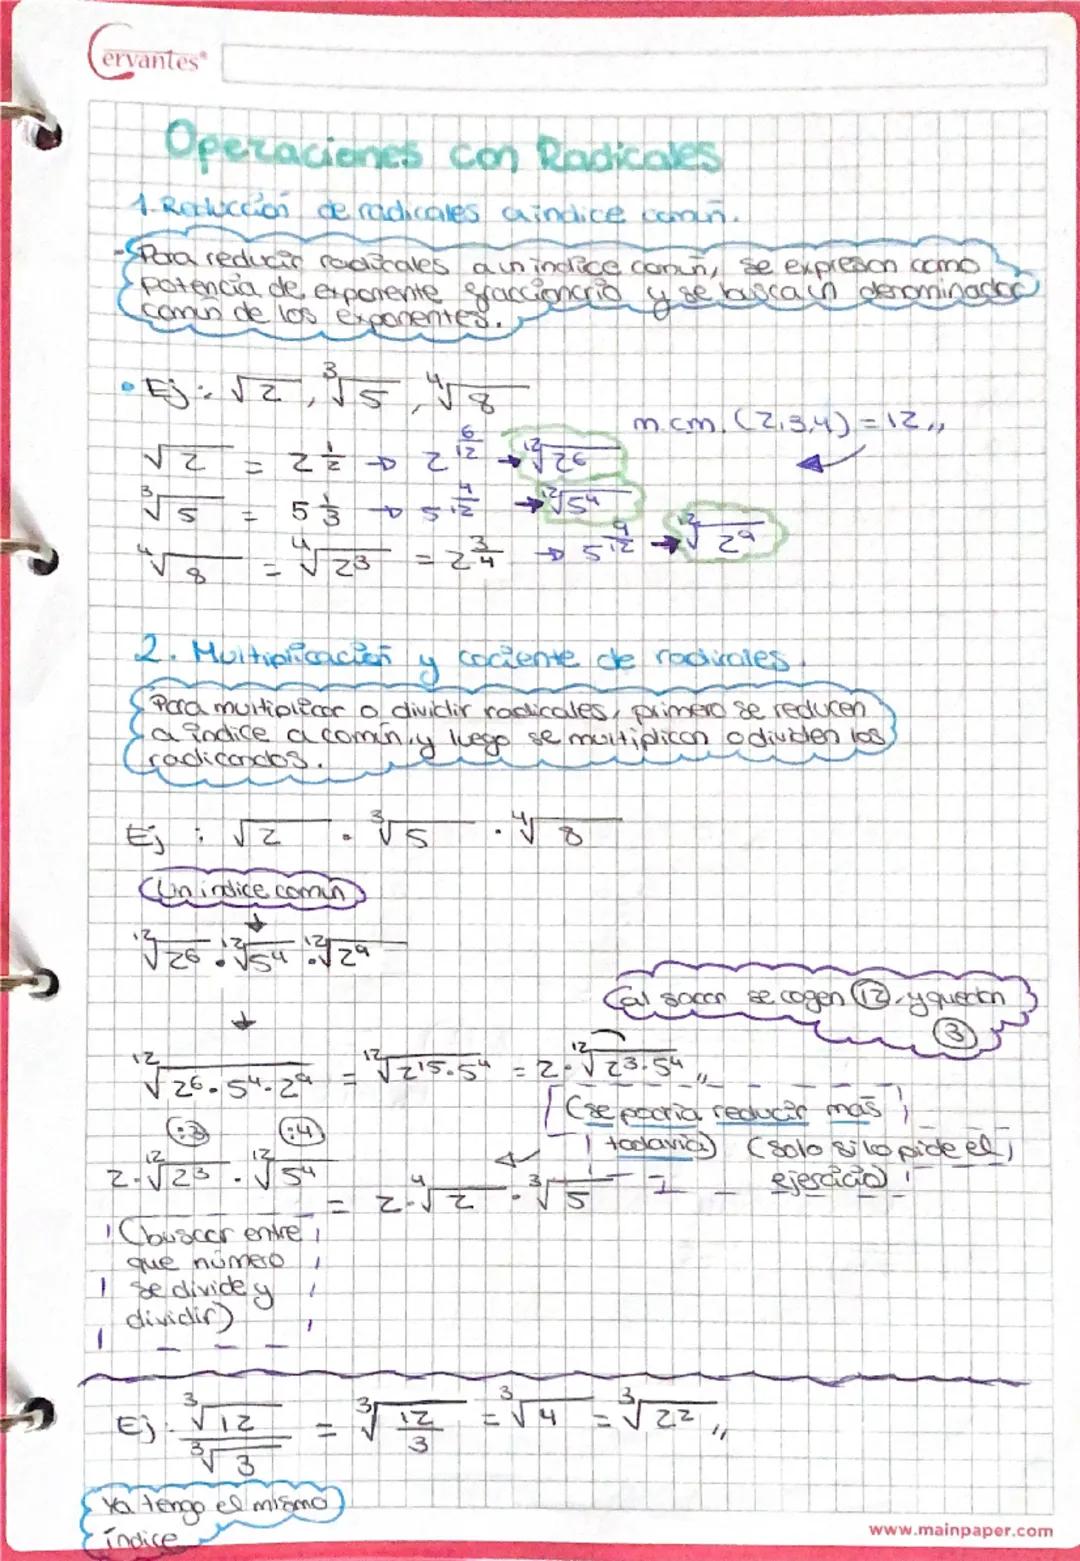 Cervantes®
Operaciones con Radicales
1. Reducción de radicales a indice comun.
- Para reducir radicales a un indice comun, se expresan como
potencia de exponente fraccionario y se busca un denominador
comun de los exponentes.
• Ej: √2, ³√5, ⁴√8
m.c.m. (2,3,4) = 12,,
√2 = 2^(1/2) → 2^(6/12) → ¹²√2⁶
³√5 = 5^(1/3) → 5^(4/12) → ¹²√5⁴
⁴√8 = ⁴√2³ = 2^(3/4) → 5^(9/12) → ¹²√2⁹
2. Multiplicación y cociente de radicales.
Para multiplicar o dividir radicales, primero se reducen
a índice a comun, y luego se multiplican o dividen los
radicandos.
Ej : √2 · ³√5 · ⁴√8
Un indice comun
↓
¹²√2⁶ · ¹²√5⁴ · ¹²√2⁹
↓
(al sacar se cogen 12, y quedan
3
¹²√2⁶·5⁴·2⁹ = ¹²√2¹⁵·5⁴ = 2·¹²√2³·5⁴,,
(se podria reducir mas
todavia) (solo si lo pide el
ejercicio)
:3 :4
2·¹²√2³ · ¹²√5⁴ = 2·⁴√2 · ³√5
(buscar entre
que número
se divide y
dividir)
Ej: ³√12 / ³√3 = ³√(12/3) = ³√4 = ³√2²,,
Ya tengo el mismo
índice
www.mainpaper.com